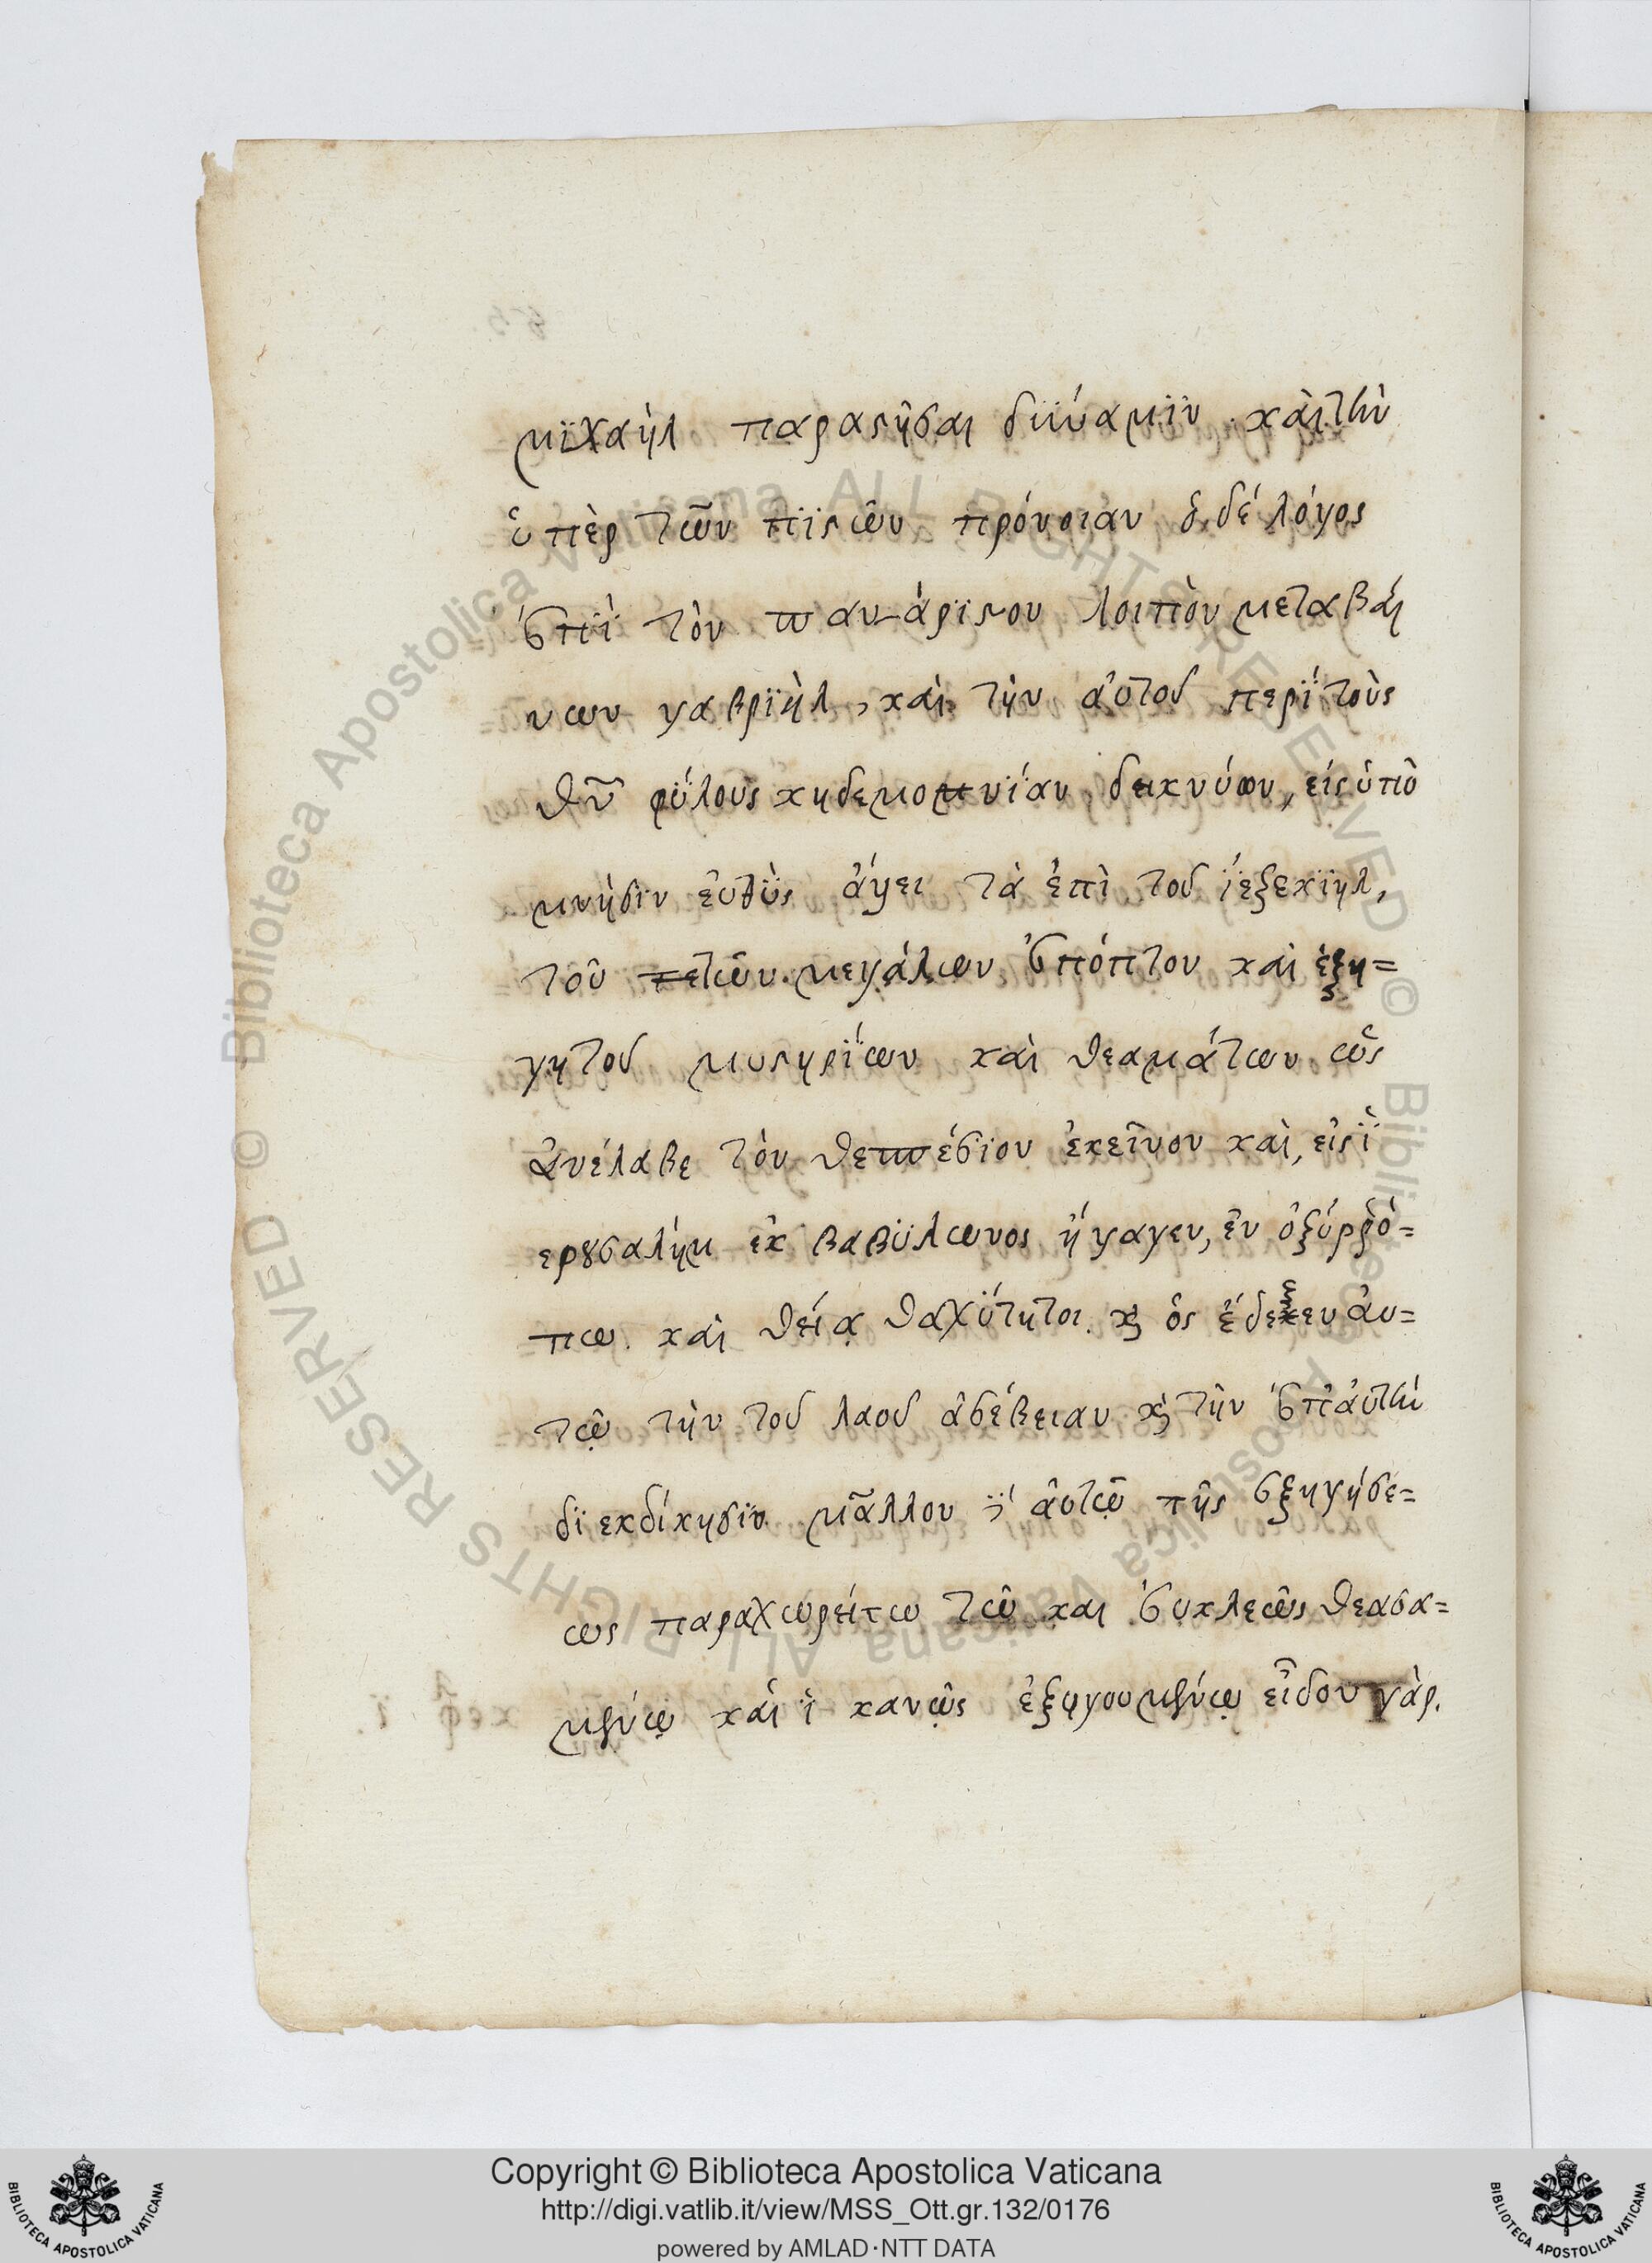 μϊχαὴλ παραστῆσαι δϋνάμϊν. καὶ τὴν
ὑπὲρ τῶν πϊστῶν πρόνοιαν ὁ δέ λόγος
ἐπῒ τὸν πανάρϊστον λοιπὸν μεταβαί
νων γαβρϊὴλ, καὶ τὴν αὐτοῦ περῒ τοὺς
θῦ φΰλους κηδεμονΐαν, δεικνύων, εἰς ὑπὸ
μνησϊν εὐθϋς ἄγει τὰ ἐπὶ τοῦ ϊεζεκϊὴλ,
τοῦ τῶν μεγάλων ἐπόπτου καὶ ἐξη=
γητοῦ μυστηρΐων καὶ θεαμάτων, ὡς
ἀνέλαβε τὸν θεσπέσϊον ἐκεῖνον καὶ, εἰς ϊ
ερουσαλὴμ ἐκ βαβϋλωνος ἤγαγεν, ἐν ὀξύρρό=
πω. καὶ θείᾳ ταχΰτητι. καὶ ὃς ἔδειξεν ἀυ=
τῷ τὴν τοῦ λαοῦ ἀσέβειαν καὶ τὴν ἐπ' ἀυτὴν
δϊεκδίκησϊν μᾶλλον αὐτῷ τῆς ἐξηγήσε=
ως παραχωρείτω τῶ καὶ ἐυκλεῶς θεασα=
μένῳ καὶ ϊκανῶς ἐξηγουμένῳ εἶδον γὰρ.
Copyright © Biblioteca Apostolica Vaticana
http://digi.vatlib.it/view/MSS_Ott.gr.132/0176
powered by AMLAD·NTT DATA
BIBLIOTECA APOSTOLICA VATICANA
BIBLIOTECA APOSTOLICA VATICANA